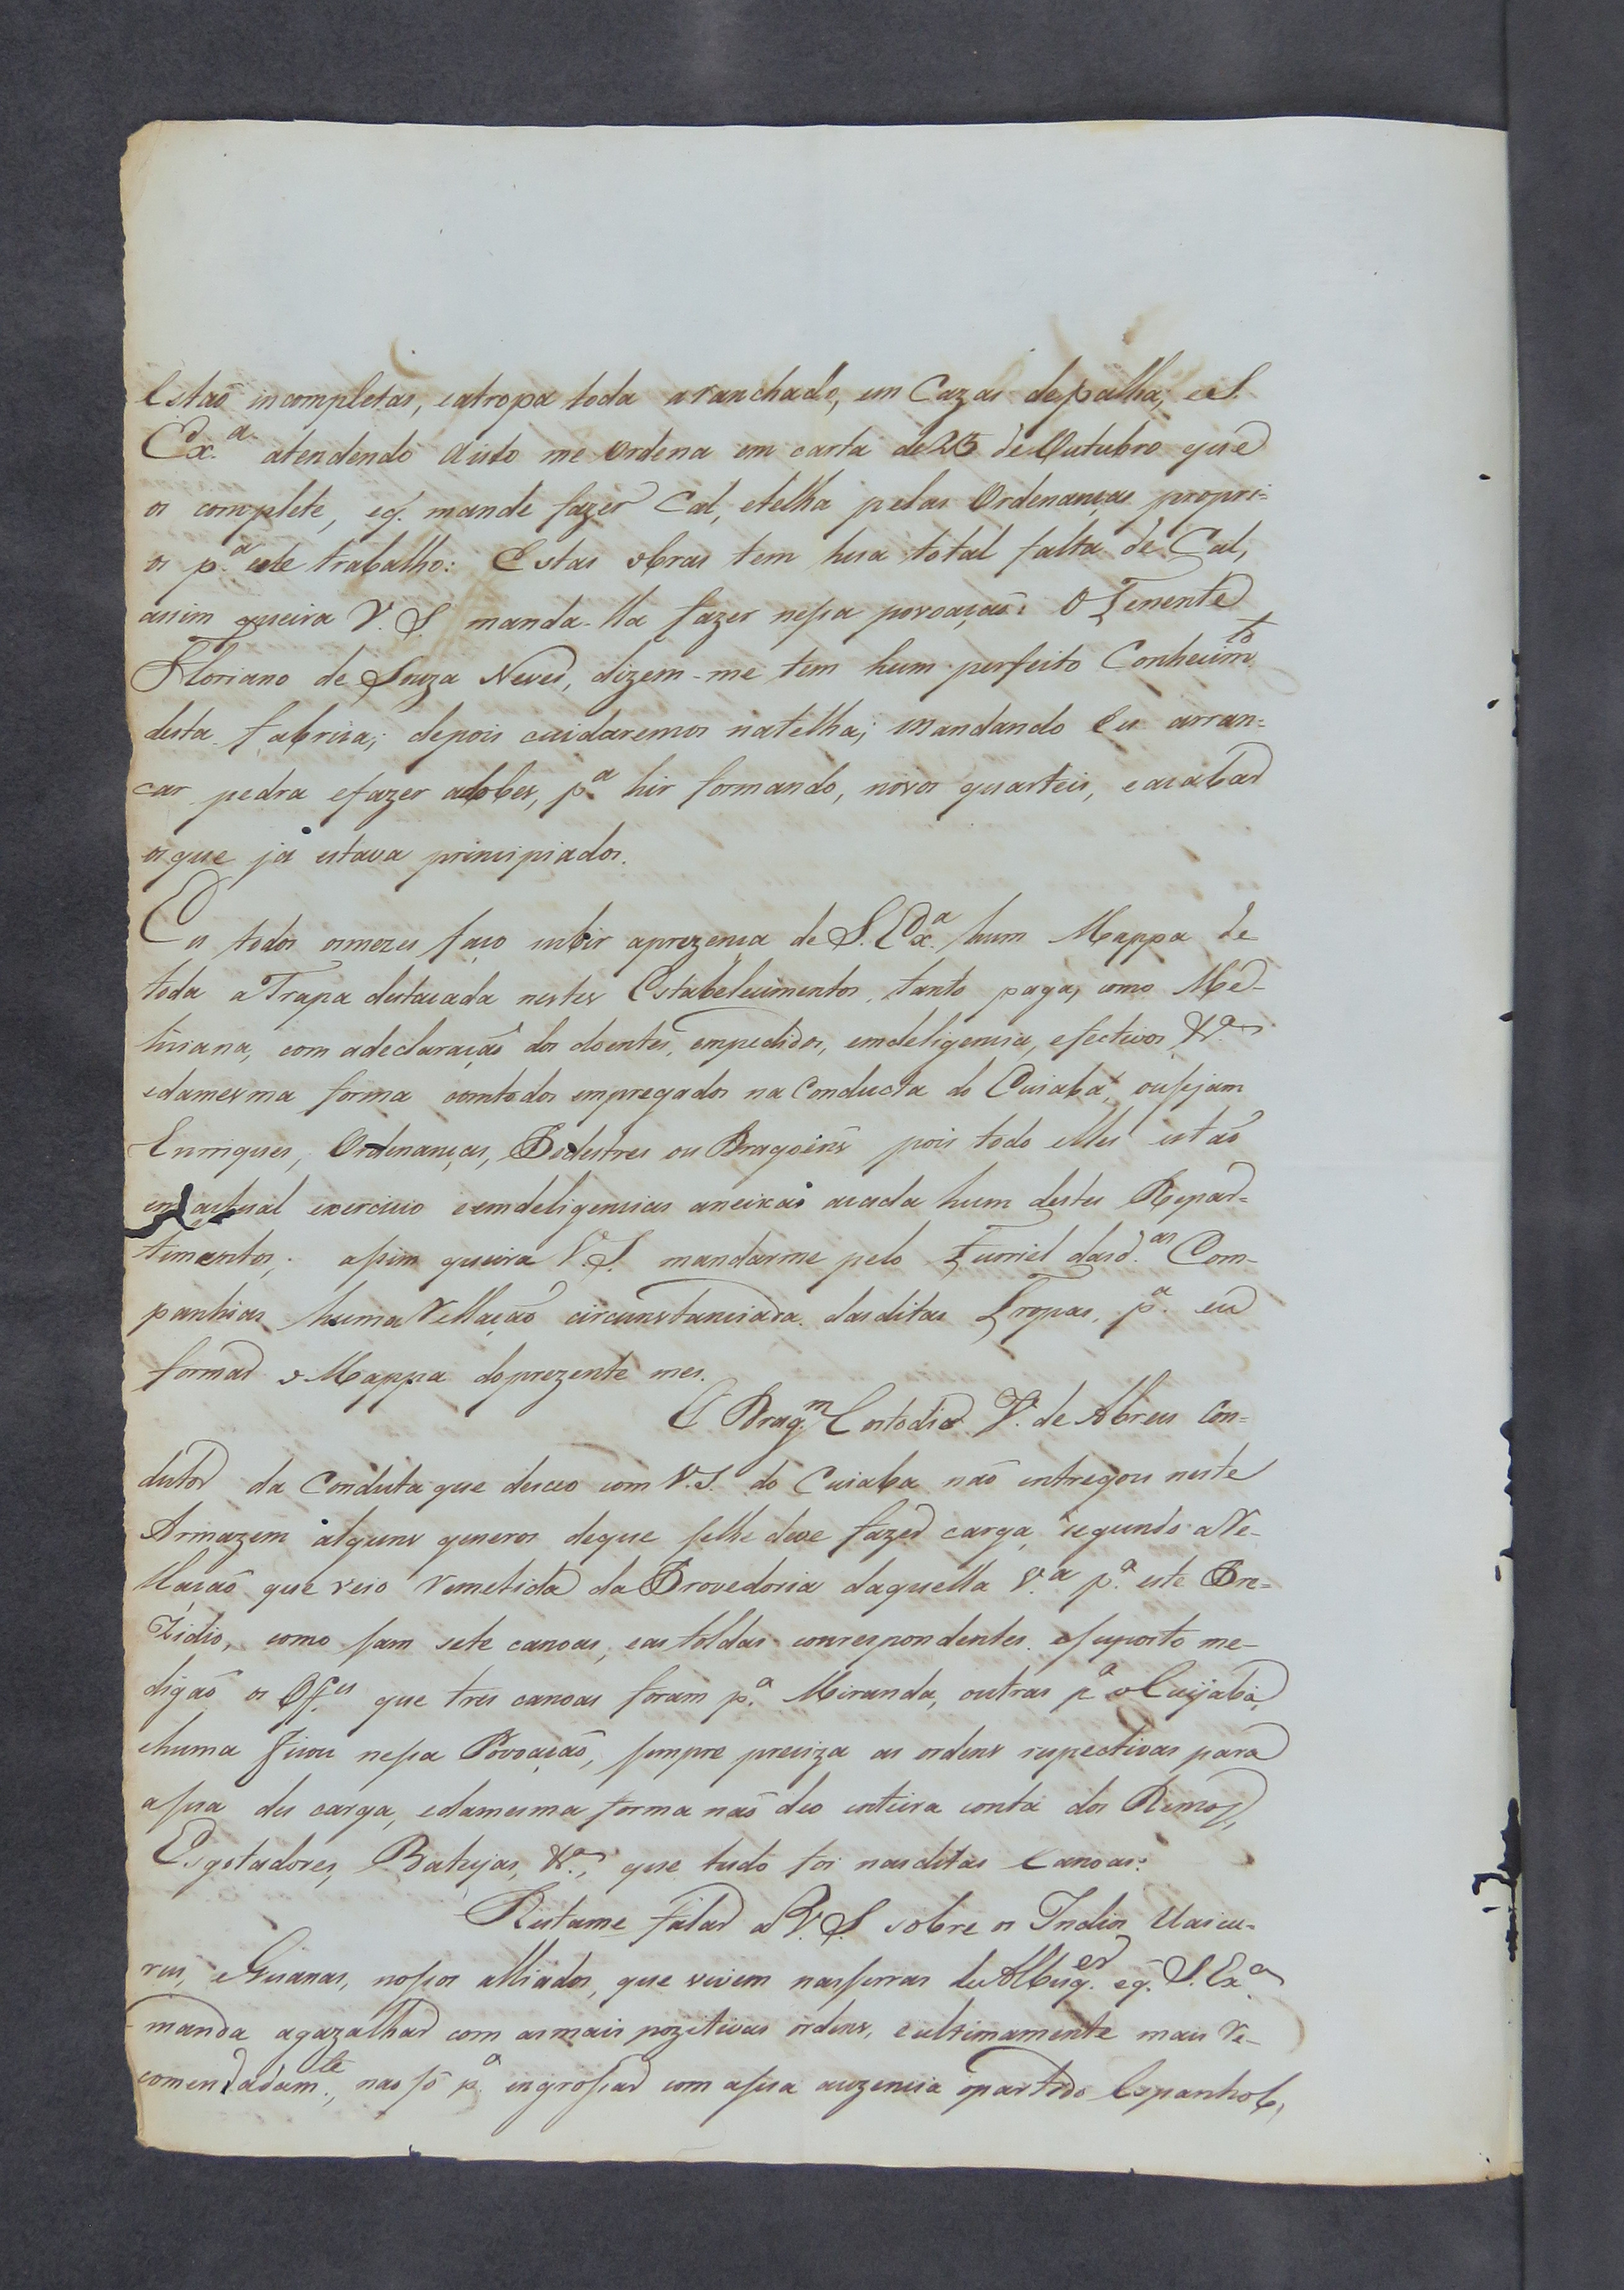 Estaõ incompletas, eatropa toda aranchado, em Cazas depalha; eS.
Ex.ª atendendo aisto me ordena em carta de 25 de Outubro que
os complete, eq̃. mande fazer Cal, etelha pelas Ordenanças propri=
os p.ª este trabalho: Estas obras tem hua total falta de Cal,
assim queira V. S. manda-lla fazer nesa povoaçaõ: O Tenente
Floriano de Souza Neves, dizem-me tem hum perfeito Conhecim.to
desta fabrica; depois cuidaremos natelha; mandando Eu arran=
car pedra efazer adobes, p.ª hir formando, novos quarteis, eacabar
osque já estava principiados.
Eu todos osmezes faço subir aprezença de S. Ex.ª hum Mappa de
toda aTropa destacada nestes Estabelecimentos, tanto paga, como Me-
liciana, com adeclaraçaõ dos doentes, empedidos, emdeligencia, efectivos &.ª
edamesma forma comtodos empregados na Conducta do Cuiabá, ousejam
Enrriques, Ordenanças, Pedestres ou Dragoens pois todo elles estaõ
em actual exercicio eemdeligencias aneixas acada hum destes Repar=
timentos; asim queira V. S. mandarme pelo Furriel dasd.as Com-
panhias huma Rellaçaõ circunstanciada dasditas Tropas, p.ª eu
formar o Mappa doprezente mes.
O Drag.m Costodio V. de Abreu Con=
dutor da Conduta que desceo com V. S. do Cuiaba naõ entregou neste
Armazem alguns generos deque selhe deve fazer carga, segundo aRe-
llaçaõ que veio remetida da Provedoria daquella V.ª p.ª este Pre=
zidio, como sam sete canoas, eastoldas correspondentes, esuposto me-
digaõ os Off.es que tres canoas foram p.ª Miranda, outras p.ª oCuijabá,
ehuma ficou nesa Povoaçaõ, sempre preciza as ordens respectivas para
asua des carga, edamesma forma naõ deo inteira conta dos Remos,
Esgotadores, Batejas, &.ª, que tudo foi nasditas Canoas:
Restame falar aV. S. sobre os Indios Uaicu-
rus, eGuanas, nosos alliados, que vivem nasserras deAlbuq.er eq̃. S. Ex.ª
manda agazalhar com asmais pozetivas ordens, eultimamente mais re-
comendadam.te, nao só p.ª ingrosar com asua auzencia opartido Espanhol,